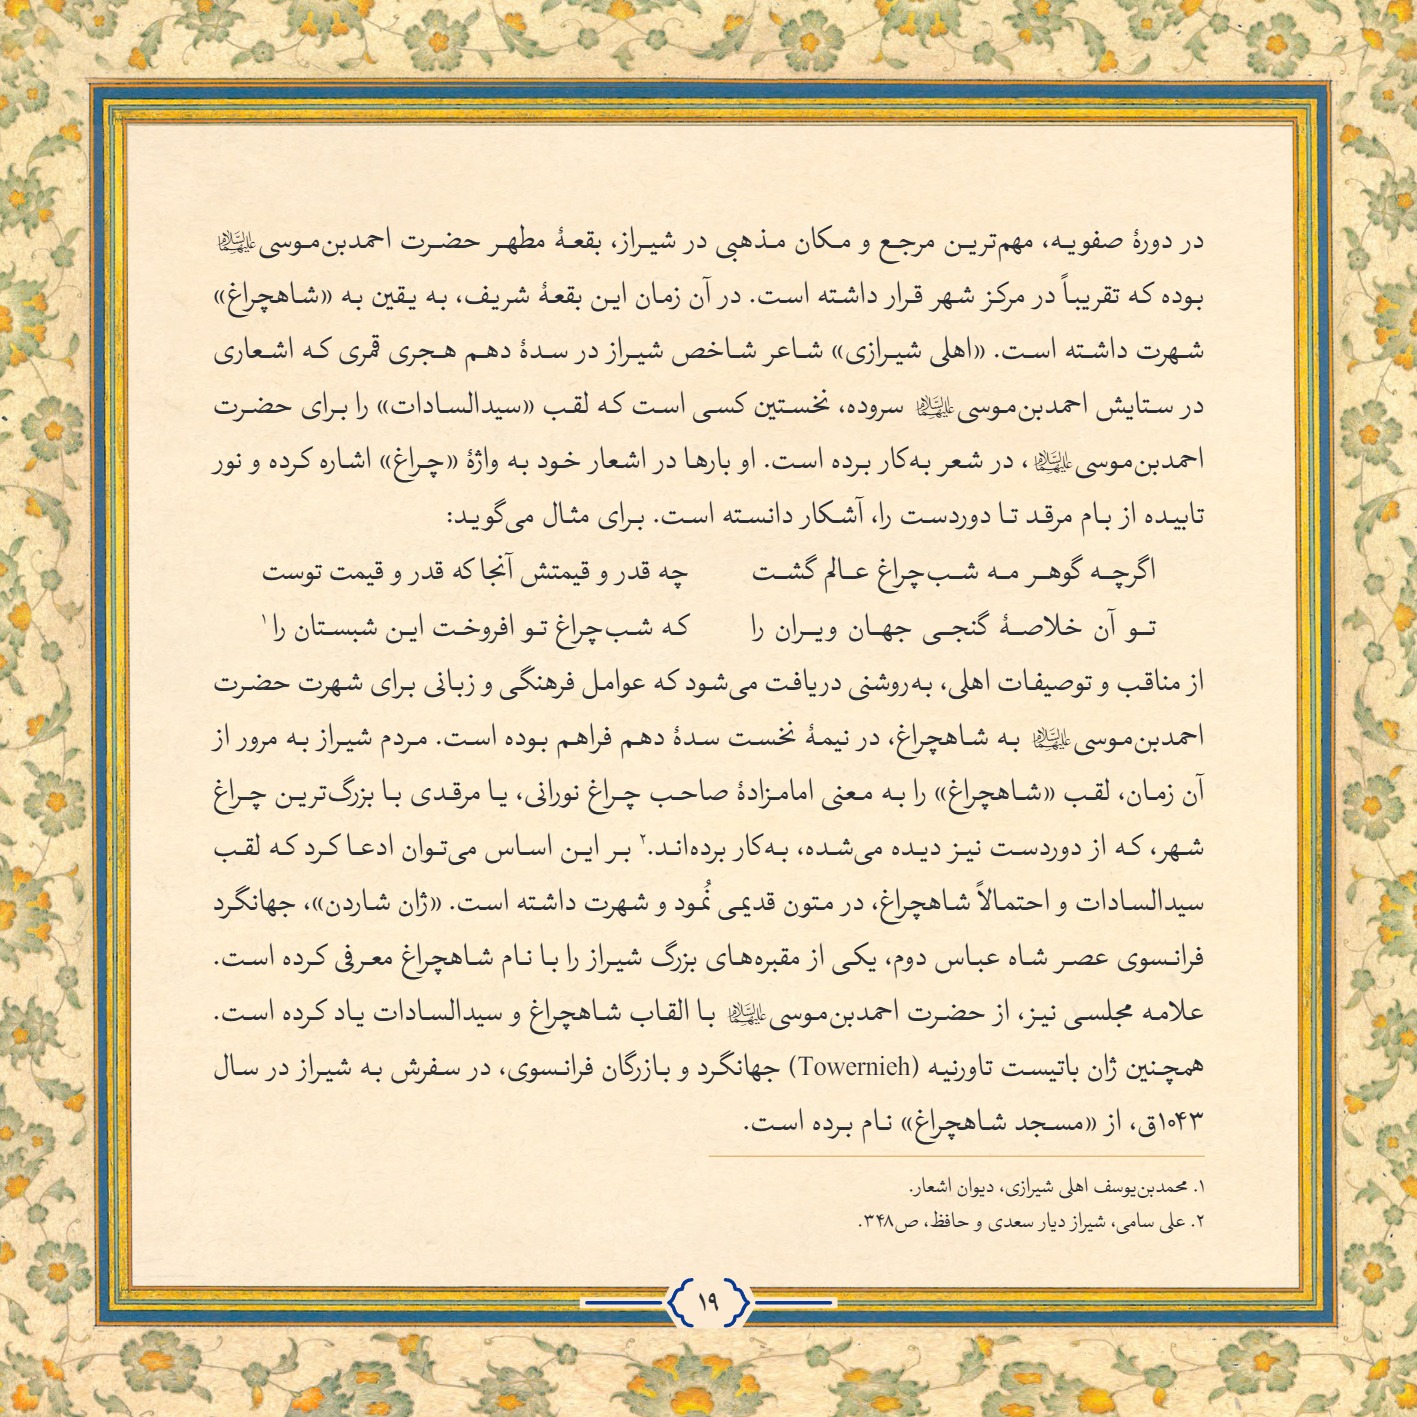 در دورهٔ صفویه، مهم‌ترین مرجع و مکان مذهبی در شیراز، بقعهٔ مطهر حضرت احمدبن‌موسی علیهماالسلام
بوده که تقریباً در مرکز شهر قرار داشته است. در آن زمان این بقعهٔ شریف، به یقین به «شاهچراغ»
شهرت داشته است. «اهلی شیرازی» شاعر شاخص شیراز در سدهٔ دهم هجری قمری که اشعاری
در ستایش احمدبن‌موسی علیهماالسلام سروده، نخستین کسی است که لقب «سیدالسادات» را برای حضرت
احمدبن‌موسی علیهماالسلام، در شعر به‌کار برده است. او بارها در اشعار خود به واژهٔ «چراغ» اشاره کرده و نور
تابیده از بام مرقد تا دوردست را، آشکار دانسته است. برای مثال می‌گوید:
اگرچه گوهر مه شب‌چراغ عالم گشت چه قدر و قیمتش آنجا که قدر و قیمت توست
تو آن خلاصهٔ گنجی جهان ویران را که شب‌چراغ تو افروخت این شبستان را۱
از مناقب و توصیفات اهلی، به‌روشنی دریافت می‌شود که عوامل فرهنگی و زبانی برای شهرت حضرت
احمدبن‌موسی علیهماالسلام به شاهچراغ، در نیمهٔ نخست سدهٔ دهم فراهم بوده است. مردم شیراز به مرور از
آن زمان، لقب «شاهچراغ» را به معنی امامزادهٔ صاحب چراغ نورانی، یا مرقدی با بزرگ‌ترین چراغ
شهر، که از دوردست نیز دیده می‌شده، به‌کار برده‌اند.۲ بر این اساس می‌توان ادعا کرد که لقب
سیدالسادات و احتمالاً شاهچراغ، در متون قدیمی نُمود و شهرت داشته است. «ژان شاردن»، جهانگرد
فرانسوی عصر شاه عباس دوم، یکی از مقبره‌های بزرگ شیراز را با نام شاهچراغ معرفی کرده است.
علامه مجلسی نیز، از حضرت احمدبن‌موسی علیهماالسلام با القاب شاهچراغ و سیدالسادات یاد کرده است.
همچنین ژان باتیست تاورنیه (Towernieh) جهانگرد و بازرگان فرانسوی، در سفرش به شیراز در سال
۱۰۴۳ق، از «مسجد شاهچراغ» نام برده است.
۱. محمدبن‌یوسف اهلی شیرازی، دیوان اشعار.
۲. علی سامی، شیراز دیار سعدی و حافظ، ص۳۴۸.
۱۹